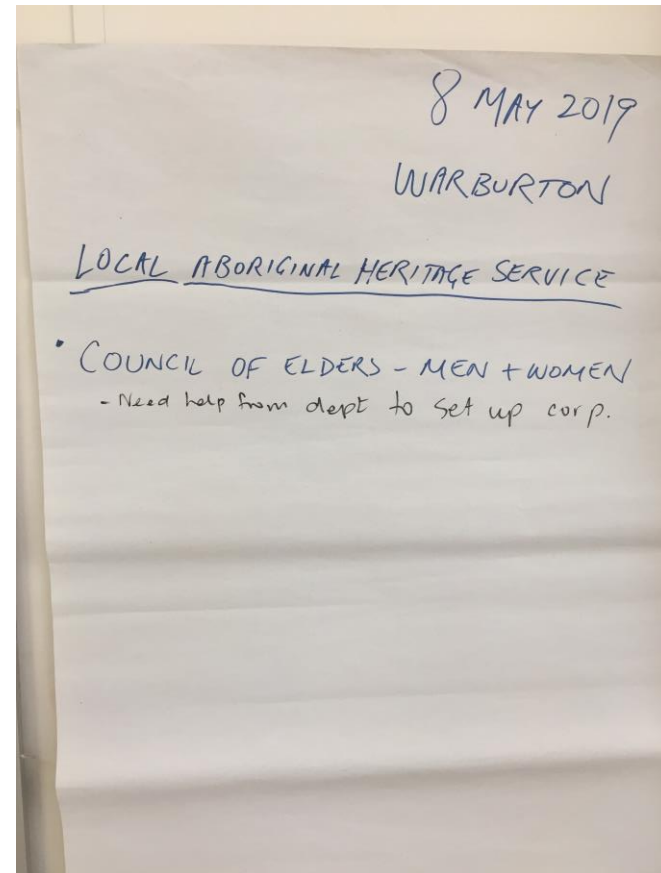 8 MAY 2019
WARBURTON
LOCAL ABORIGINAL HERITAGE SERVICE
• COUNCIL OF ELDERS - MEN + WOMEN
- Need help from dept to set up corp.